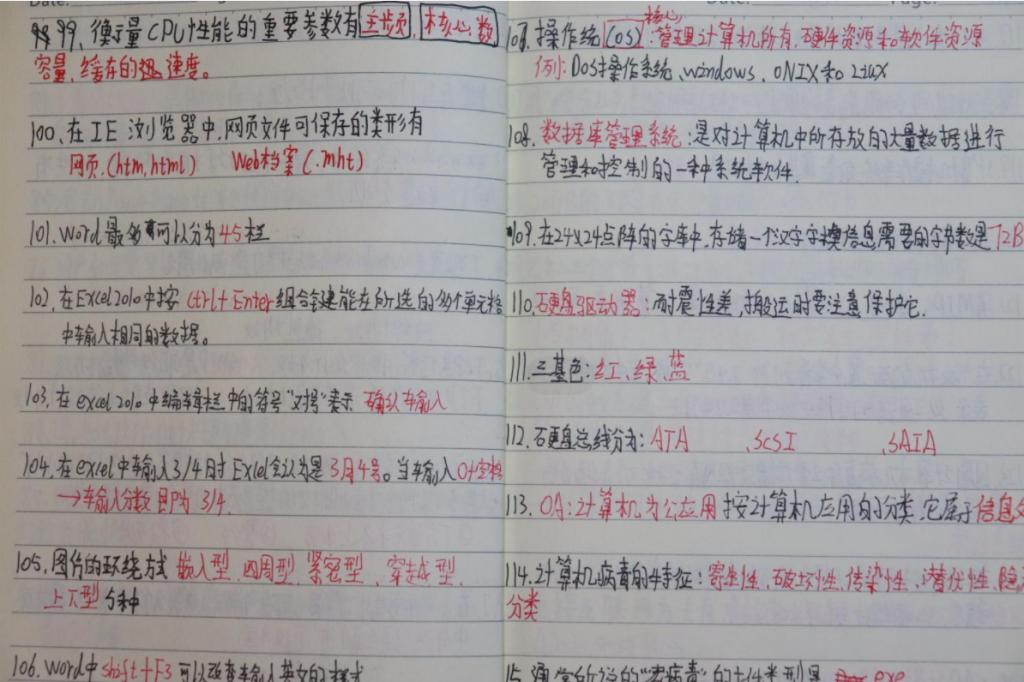 99、衡量CPU性能的重要参数有主频、核心数
容量、缓存的速度。
100、在IE浏览器中,网页文件可保存的类形有
网页.(htm,html) Web档案(.mht)
101、word最多可以分为45栏
102、在Excel2010中按 ctrl+Enter组合键能在所选的多个单元格
中输入相同的数据。
103、在excel2010中编辑栏中的符号"对号"表示 确认输入
104、在excel中输入3/4时Excel会认为是3月4号。当输入0+空格
→输入分数即为3/4.
105、图片的环绕方式 嵌入型、四周型、紧密型、穿越型、
上下型5种
106、word中shift+F3可以改变输入英文的样式
107、操作统(OS):管理计算机所有,硬件资源和软件资源
核心
例:DOS操作系统、windows、UNIX和Linux
108、数据库管理系统:是对计算机中所存放的大量数据进行
管理和控制的一种系统软件.
109、在24x24点阵的字库中,存储一个汉字字模信息需要的字节数是72B
110、硬盘驱动器:耐震性差,搬运时要注意保护它.
111.三基色:红、绿、蓝
112.硬盘总线分为:ATA 、SCSI 、SATA
113、OA:计算机办公应用 按计算机应用的分类,它属于信息
114、计算机病毒的特征:寄生性、破坏性、传染性、潜伏性、隐
分类
通常所说的"宏病毒"的文件类型是 exe